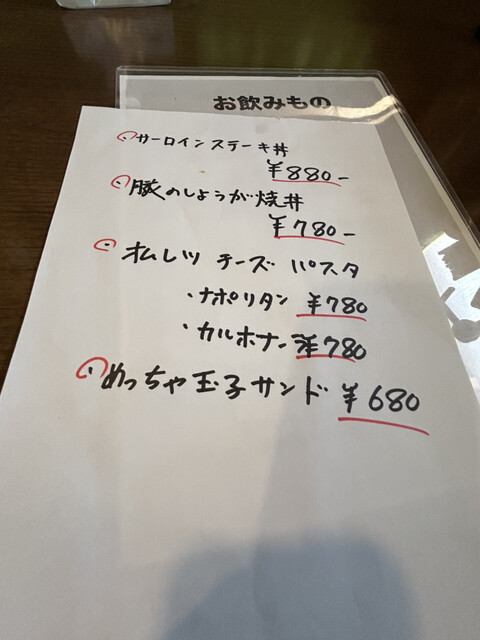 お飲みもの
サーロインステーキ丼
¥880-
豚のしょうが焼丼
¥780-
オムレツ チーズ パスタ
・ナポリタン ¥780
・カルボナーラ ¥780
めっちゃ玉子サンド ¥680